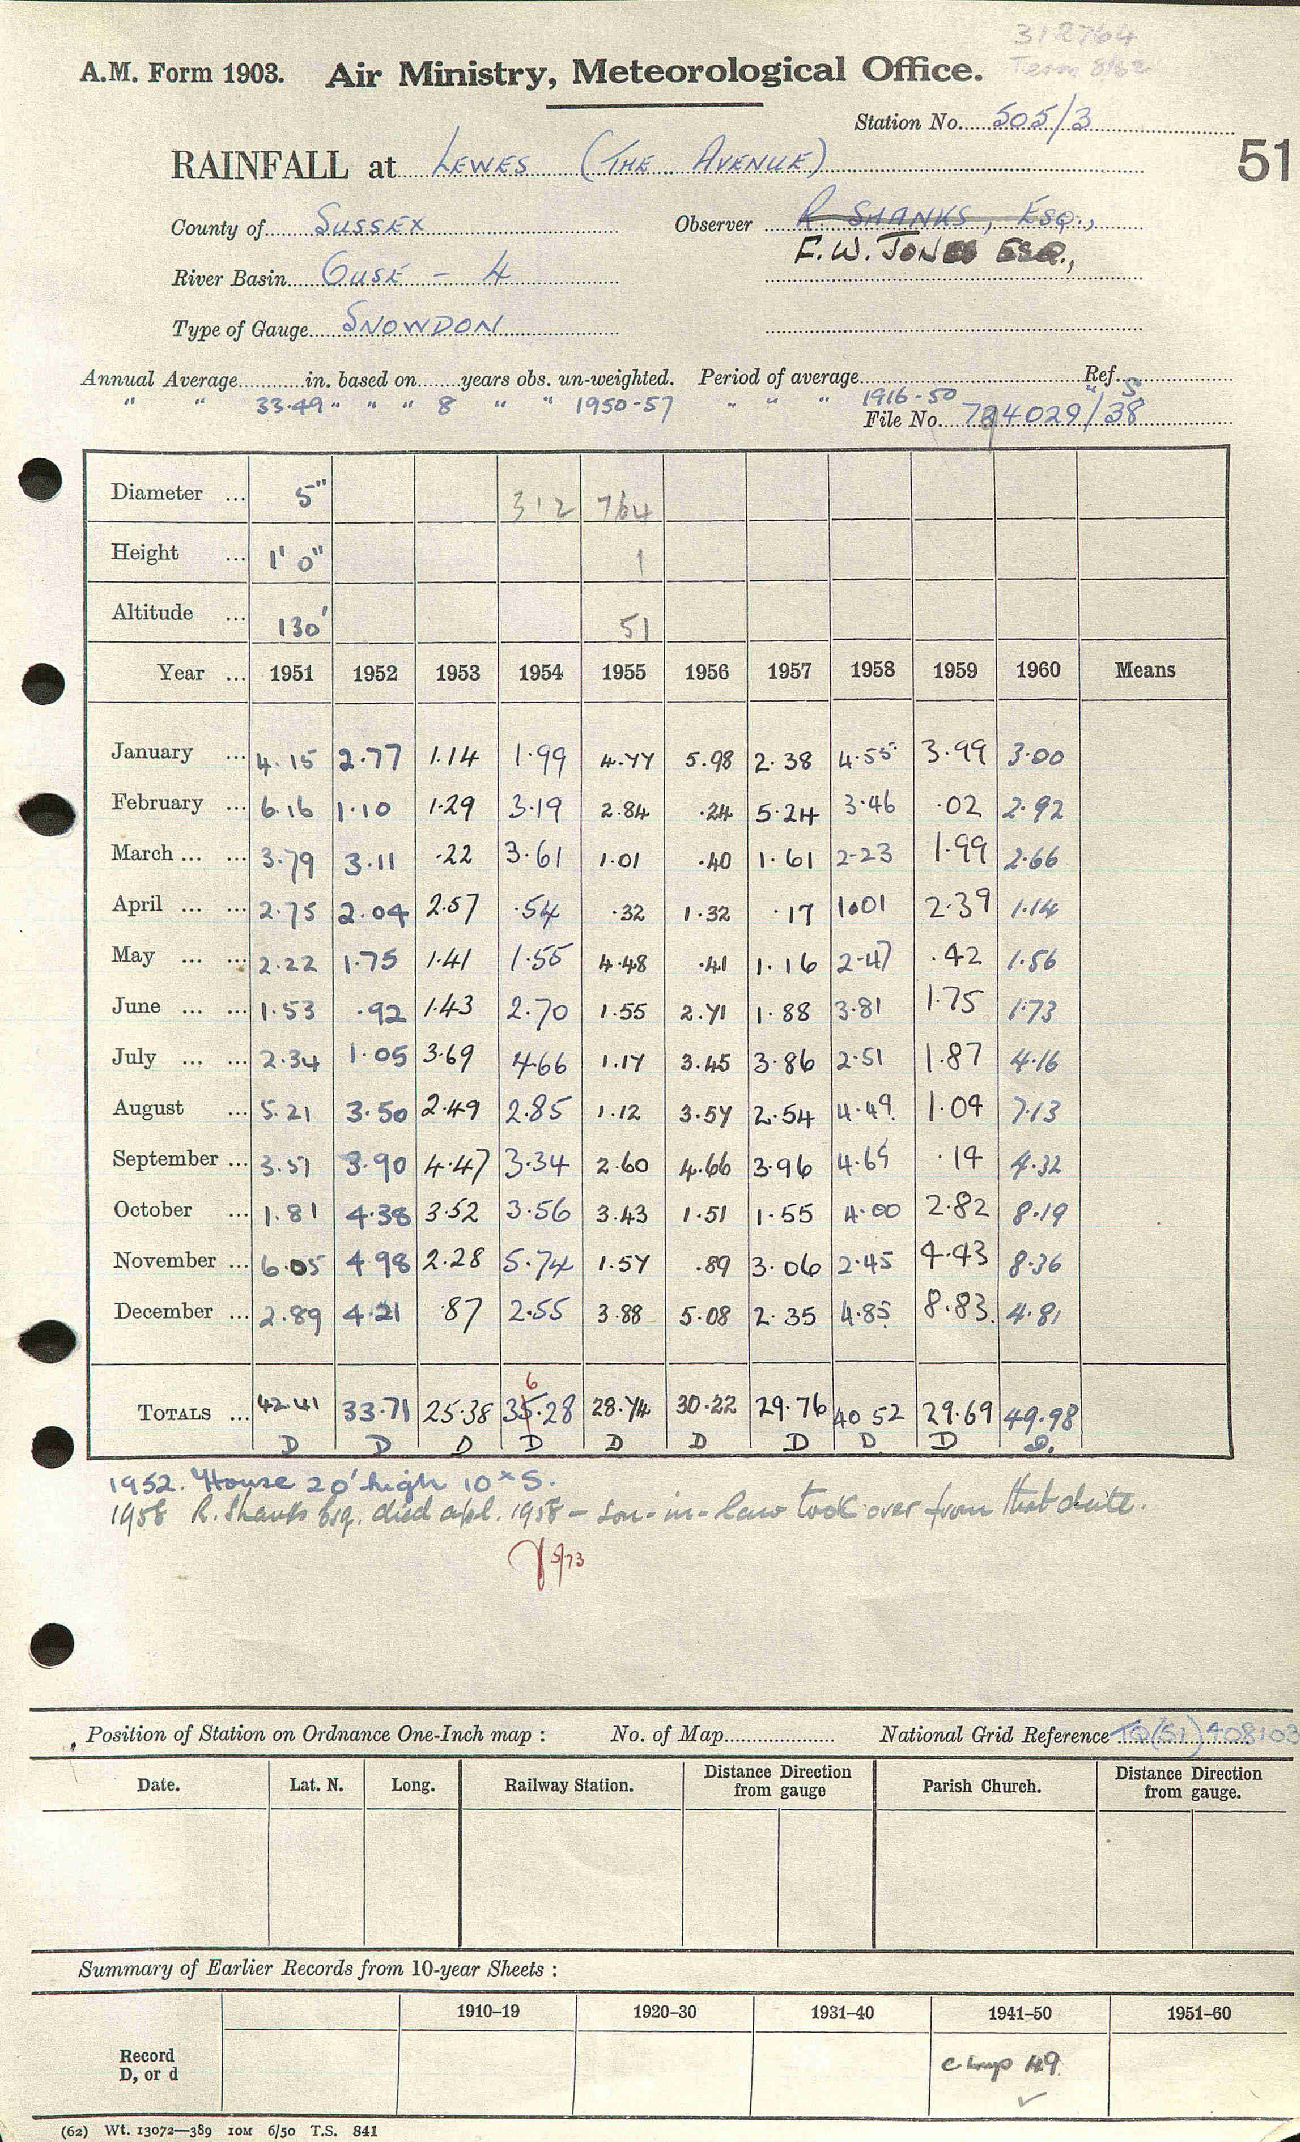 312764
A.M. Form 1903. Air Ministry, Meteorological Office.
Term 8182
Station No. 505/3
51
RAINFALL at LEWES (THE AVENUE)
County of SUSSEX Observer R SHANKS, ESQ.,
F. W. JONES ESQ.,
River Basin OUSE - 4
Type of Gauge SNOWDON
Annual Average in. based on years obs. un-weighted. Period of average Ref. S
" " 33.49 " " " 8 " " 1950-57 " " " 1916-50
File No. 4029/38
Diameter ... 5" 312 764
Height ... 1' 0" 1
Altitude ... 130' 51
Year ... 1951 1952 1953 1954 1955 1956 1957 1958 1959 1960 Means
January ... 4.15 2.77 1.14 1.99 4.77 5.98 2.38 4.55 3.99 3.00
February ... 6.16 1.10 1.29 3.19 2.84 .24 5.24 3.46 .02 2.92
March ... ... 3.79 3.11 .22 3.61 1.01 .40 1.61 2.23 1.99 2.66
April ... ... 2.75 2.04 2.57 .54 .32 1.32 .17 1.01 2.39 1.14
May ... ... 2.22 1.75 1.41 1.55 4.48 .41 1.16 2.47 .42 1.56
June ... ... 1.53 .92 1.43 2.70 1.55 2.71 1.88 3.81 1.75 1.73
July ... ... 2.34 1.05 3.69 4.66 1.17 3.45 3.86 2.51 1.87 4.16
August ... 5.21 3.50 2.49 2.85 1.12 3.57 2.54 4.49 1.04 7.13
September ... 3.51 3.90 4.47 3.34 2.60 4.66 3.96 4.69 .14 4.32
October ... 1.81 4.38 3.52 3.56 3.43 1.51 1.55 4.00 2.82 8.19
November ... 6.05 4.98 2.28 5.74 1.57 .89 3.06 2.45 4.43 8.36
December ... 2.89 4.21 .87 2.55 3.88 5.08 2.35 4.85 8.83 4.81
6
TOTALS ... 42.41 33.71 25.38 35.28 28.74 30.22 29.76 40 52 29.69 49.98
D D D D D D D D D D.
1952. House 20' high 10 x S.
1958 R. Shanks Esq. died apl. 1958 - son-in-law took over from that date.
5/73
Position of Station on Ordnance One-Inch map : No. of Map National Grid Reference TQ(51)408103
Date. Lat. N. Long. Railway Station. Distance Direction from gauge Parish Church. Distance Direction from gauge.
Summary of Earlier Records from 10-year Sheets :
1910-19 1920-30 1931-40 1941-50 1951-60
Record D, or d 49
(62) Wt. 13072—389 10M 6/50 T.S. 841